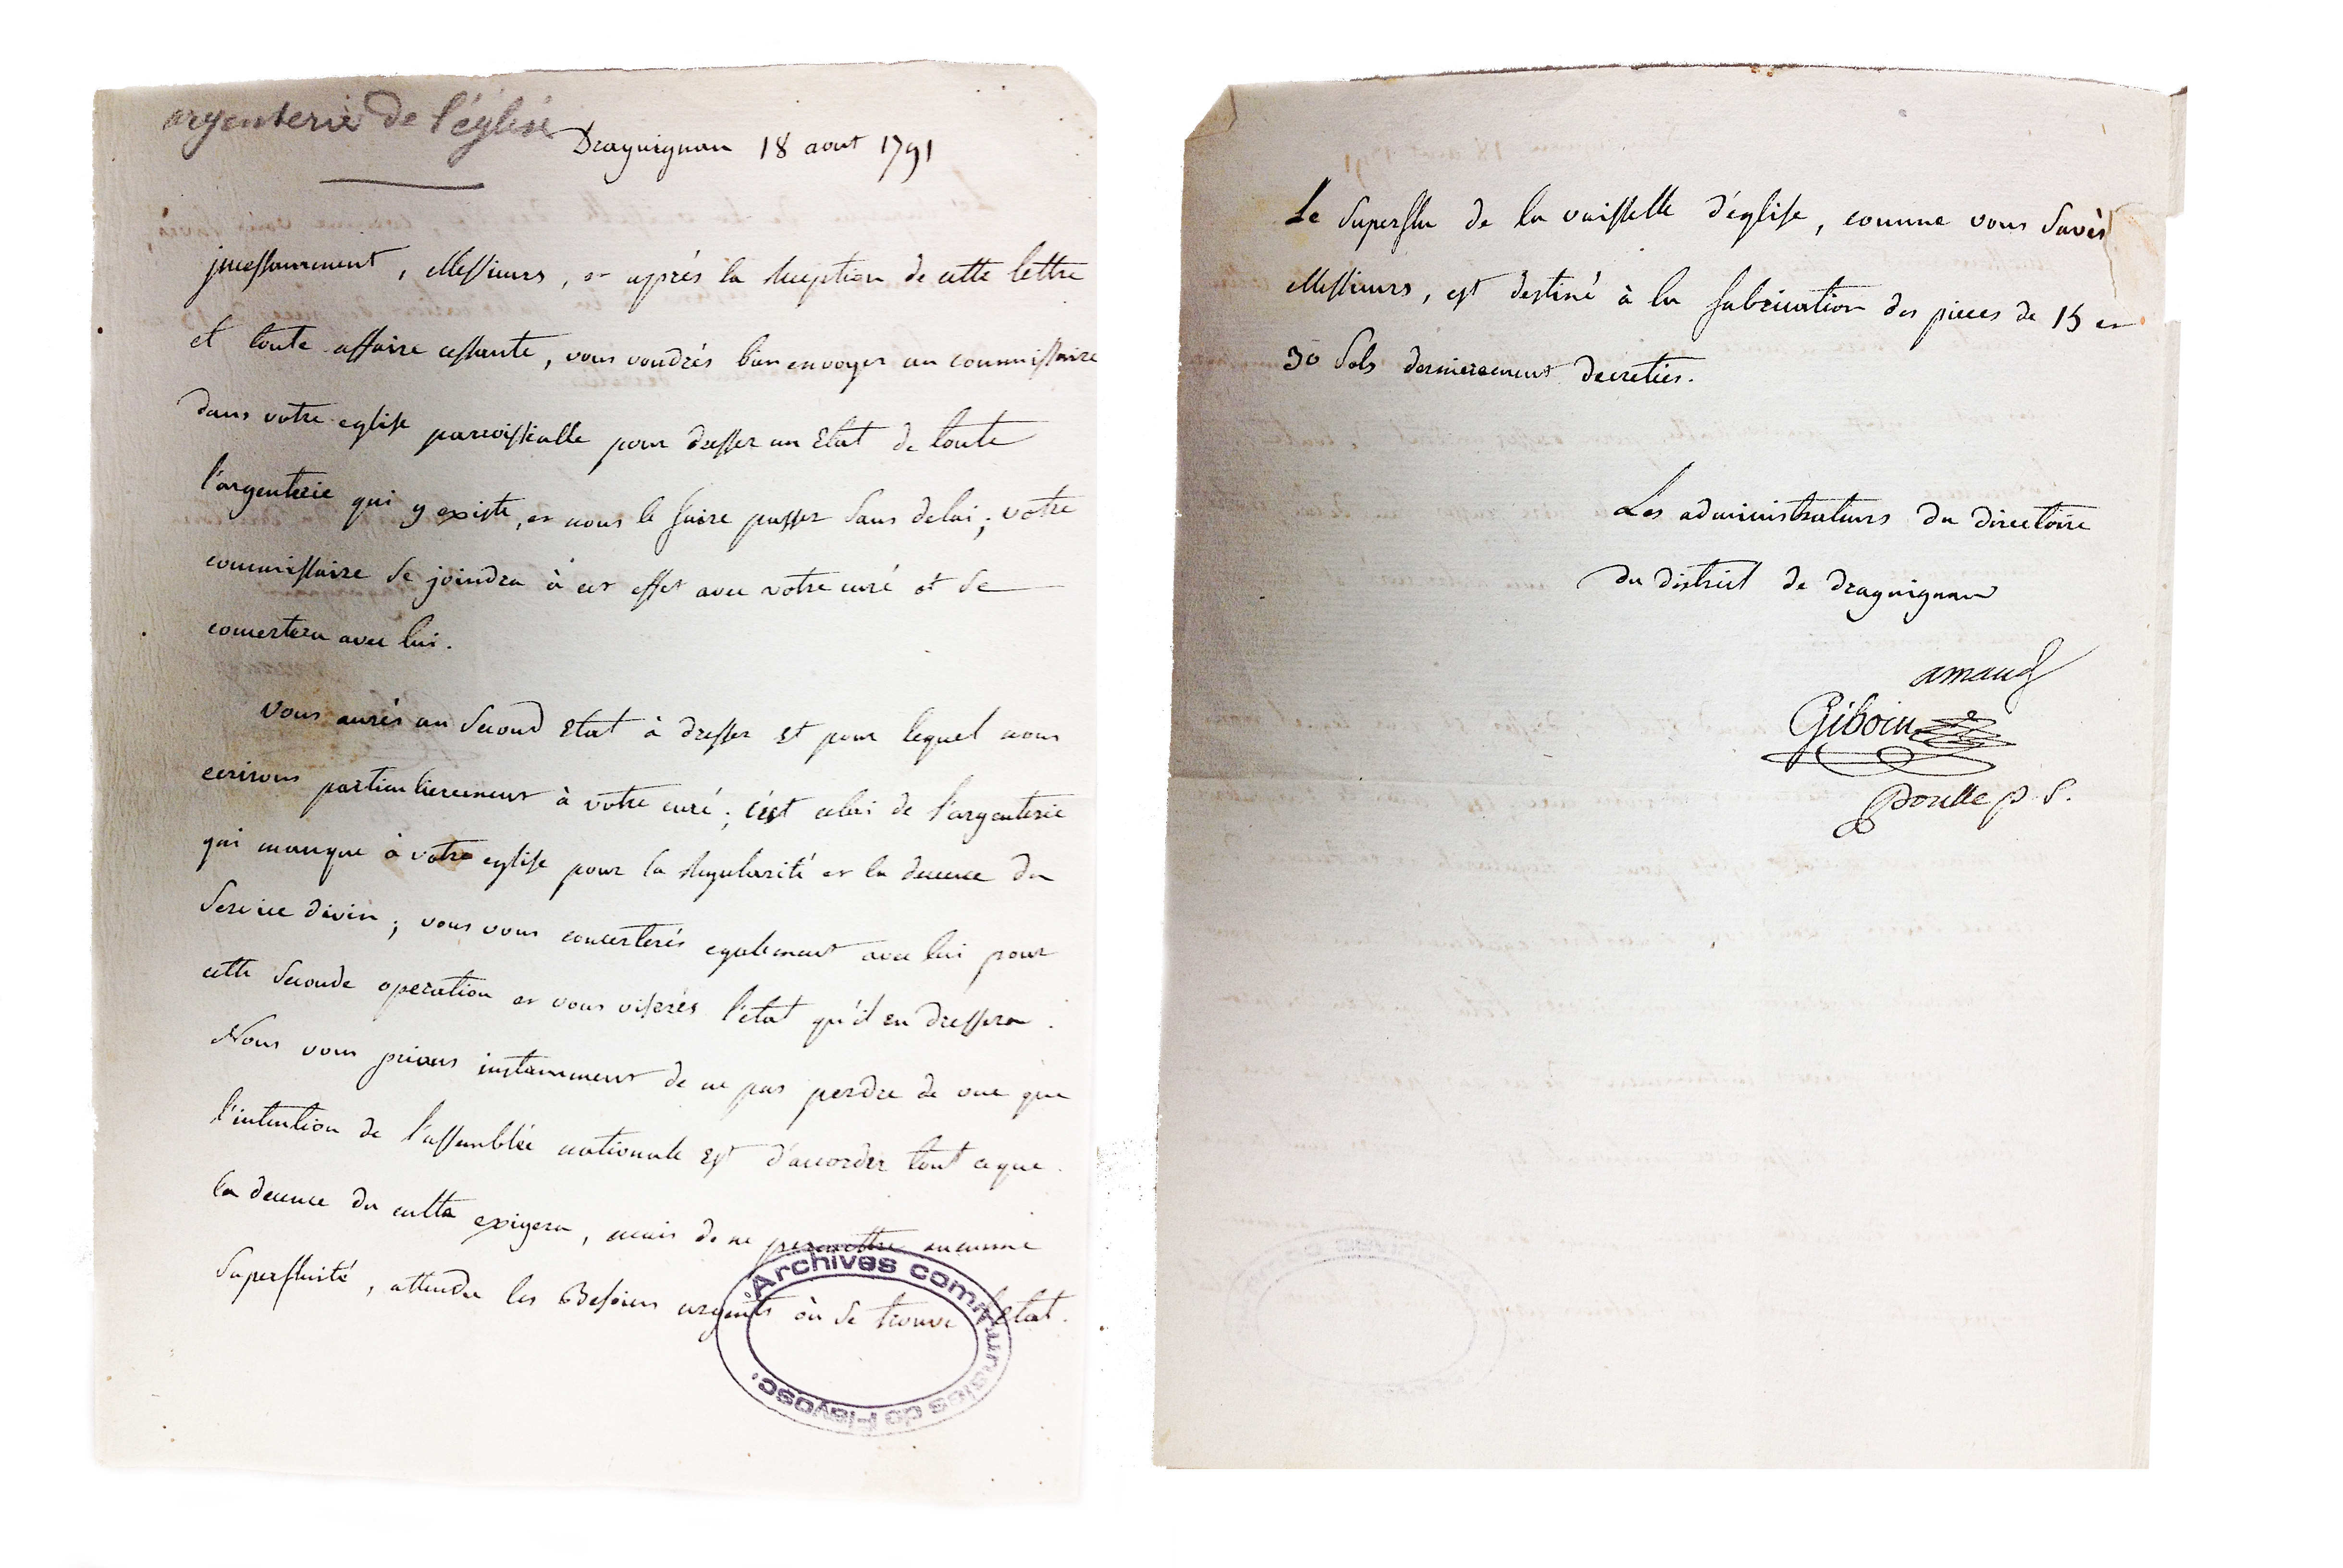 argenterie de l'église
Draguignan 18 aout 1791
jncessamment, Messieurs, et après la reception de cette lettre
et toute affaire cessante, vous voudrés bien envoyer un commissaire
dans votre eglise parroissialle pour dresser un Etat de toute
l'argenterie qui y existe, et nous le faire passer sans delai; votre
commissaire se joindra à cet effet avec votre curé et se
concertera avec lui.
vous aurés un second Etat à dresser et pour lequel nous
ecrivons particulierement à votre curé; c'est celui de l'argenterie
qui manque à votre eglise pour la regularité et la decence du
service divin; vous vous concerterés egalement avec lui pour
cette seconde operation et vous viserés l'état qu'il en dressera.
Nous vous prions instamment de ne pas perdre de vue que
l'intention de l'assemblée nationale est d'accorder tout ce que
la decence du culte exigera, mais de ne permettre aucune
superfluité, attendu les Besoins urgents où se trouve l'Etat.
Archives communales de Flayosc
Le superflu de la vaisselle d'église, comme vous savés
Messieurs, est destiné à la fabrication des pieces de 15 et
30 sols dernierement decretées.
Les administrateurs du directoire
du district de draguignan
arnaud
Giboin
poulle p. s.